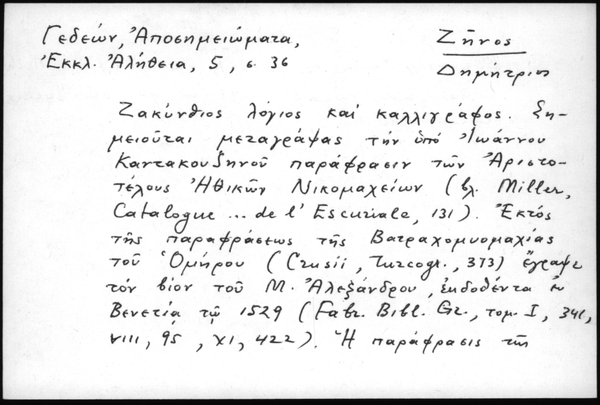 Γεδεών, Ἀποσημειώματα,
Ἐκκλ. Ἀλήθεια, 5, σ. 36
Ζῆνος
Δημήτριος
Ζακύνθιος λόγιος καὶ καλλιγράφος. Ση-
μειοῦται μεταγράψας τὴν ὑπὸ Ἰωάννου
Καντακουζηνοῦ παράφρασιν τῶν Ἀριστο-
τέλους Ἠθικῶν Νικομαχείων (βλ. Miller,
Catalogue ... de l' Escuriale, 131). Ἐκτὸς
τῆς παραφράσεως τῆς Βατραχομυομαχίας
τοῦ Ὁμήρου (Crusii, Turcogr., 373) ἔγραψε
τὸν βίον τοῦ Μ. Ἀλεξάνδρου, ἐκδοθέντα ἐν
Βενετίᾳ τῷ 1529 (Fabr. Bibl. Gr., τομ. I, 341,
VIII, 95, XI, 422). Ἡ παράφρασις τῆς